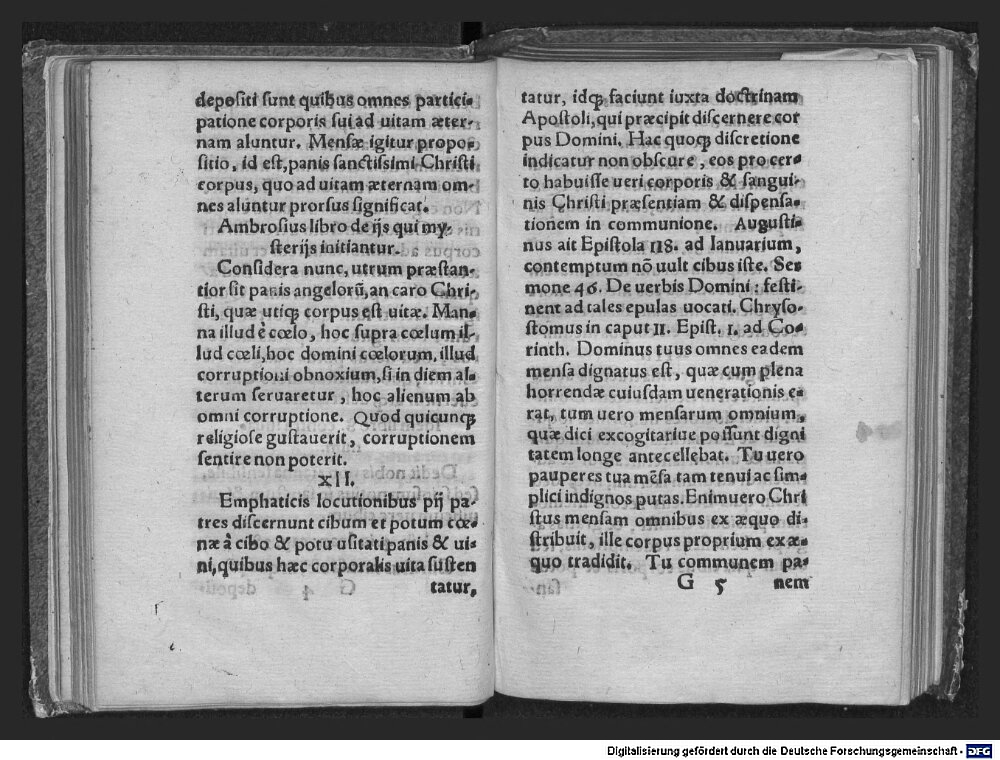 depositi ſunt quibus omnes partici-
patione corporis ſui ad uitam æter-
nam aluntur. Menſæ igitur propo-
ſitio, id eſt, panis ſanctiſsimi Chriſti
corpus, quo ad uitam æternam om-
nes aluntur prorſus ſignificat.
Ambroſius libro de ijs qui my-
ſterijs initiantur.
Conſidera nunc, utrum præſtan-
tior ſit panis angelorũ, an caro Chri-
ſti, quæ utiqꝫ corpus eſt uitæ. Man-
na illud è cœlo, hoc ſupra cœlum il-
lud cœli, hoc domini cœlorum, illud
corruptioni obnoxium, ſi in diem al-
terum ſeruaretur, hoc alienum ab
omni corruptione. Quod quicunqꝫ
religioſe guſtauerit, corruptionem
ſentire non poterit.
XII.
Emphaticis locutionibus pij pa-
tres diſcernunt cibum et potum cœ-
næ à cibo & potu uſitati panis & ui-
ni, quibus hæc corporalis uita ſuſten
tatur,
tatur, idqꝫ faciunt iuxta doctrinam
Apoſtoli, qui præcipit diſcernere cor
pus Domini. Hac quoqꝫ diſcretione
indicatur non obſcure, eos pro cer-
to habuiſſe ueri corporis & ſangui-
nis Chriſti præſentiam & diſpenſa-
tionem in communione. Auguſti-
nus ait Epiſtola 118. ad Ianuarium,
contemptum nõ uult cibus iſte. Ser
mone 46. De uerbis Domini: feſti-
nent ad tales epulas uocati. Chryſo-
ſtomus in caput 11. Epiſt. 1. ad Co-
rinth. Dominus tuus omnes eadem
menſa dignatus eſt, quæ cum plena
horrendæ cuiuſdam uenerationis e-
rat, tum uero menſarum omnium,
quæ dici excogitariue poſſunt digni
tatem longe antecellebat. Tu uero
pauperes tua mẽſa tam tenui ac ſim-
plici indignos putas. Enimuero Chri
ſtus menſam omnibus ex æquo di-
ſtribuit, ille corpus proprium ex æ-
quo tradidit. Tu communem pa-
G 5 nem
Digitalisierung gefördert durch die Deutsche Forschungsgemeinschaft - DFG